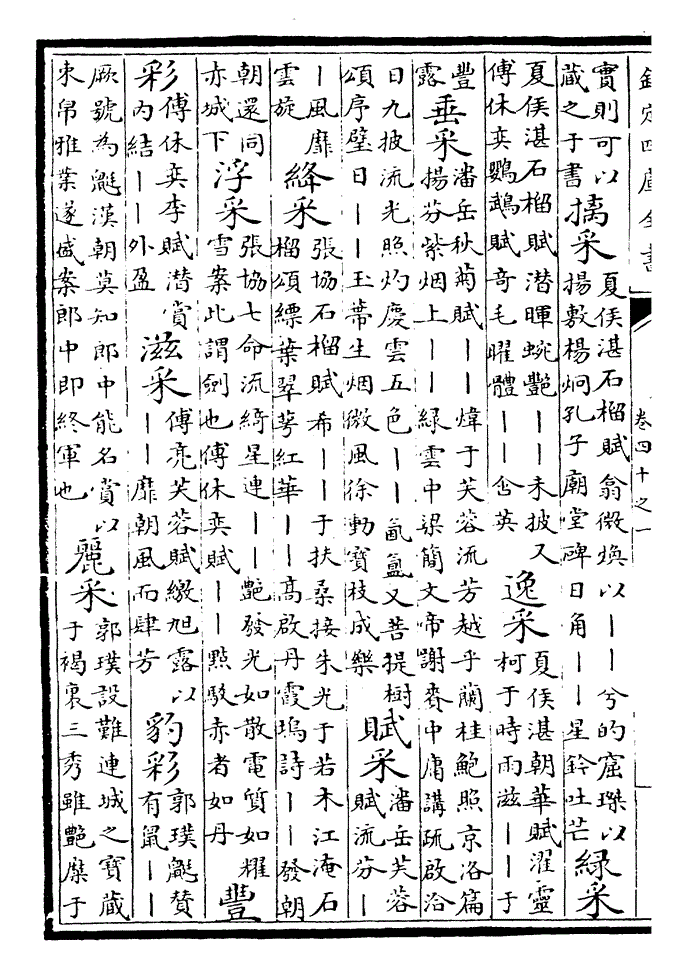 欽定四庫全書 卷四十之一
實則可以藏之于書摛采夏侯湛石榴賦翕微煥以——兮的窟璨以揚敷楊炯孔子廟堂碑日角——星鈐吐芒緑采
夏侯湛石榴賦潛暉蜿艷——未披又傅休奕鸚鵡賦奇毛曜體——含英逸采夏侯湛朝華賦濯靈柯于時雨滋——于
豐露垂采潘岳秋菊賦——煒于芙蓉流芳越乎蘭桂鮑照京洛篇揚芬紫烟上——緑雲中梁簡文帝謝賚中庸講疏啟洽
日九披流光照灼慶雲五色——氤氲又菩提樹頌序璧日——玉蒂生烟微風徐動寳枝成樂賦采潘岳芙蓉賦流芬—
—風靡雲旋絳采張協石榴賦希——于扶桑接朱光于若木江淹石榴頌縹葉翠萼紅華——高啟丹霞塢詩——發朝
朝還同赤城下浮采張協七命流綺星連——艷發光如散電質如耀雪案此謂劍也傅休奕賦——點駁赤者如丹豐
彩傅休奕李賦潛賞内結——外盈滋采傅亮芙蓉賦繳旭露以——靡朝風而肆芳豹彩郭璞鼮贊有鼠——
厥號為鼮漢朝莫知郎中能名賞以束帛雅業遂盛案郎中即終軍也麗采郭璞設難連城之寳藏于褐裏三秀雖艷糜于